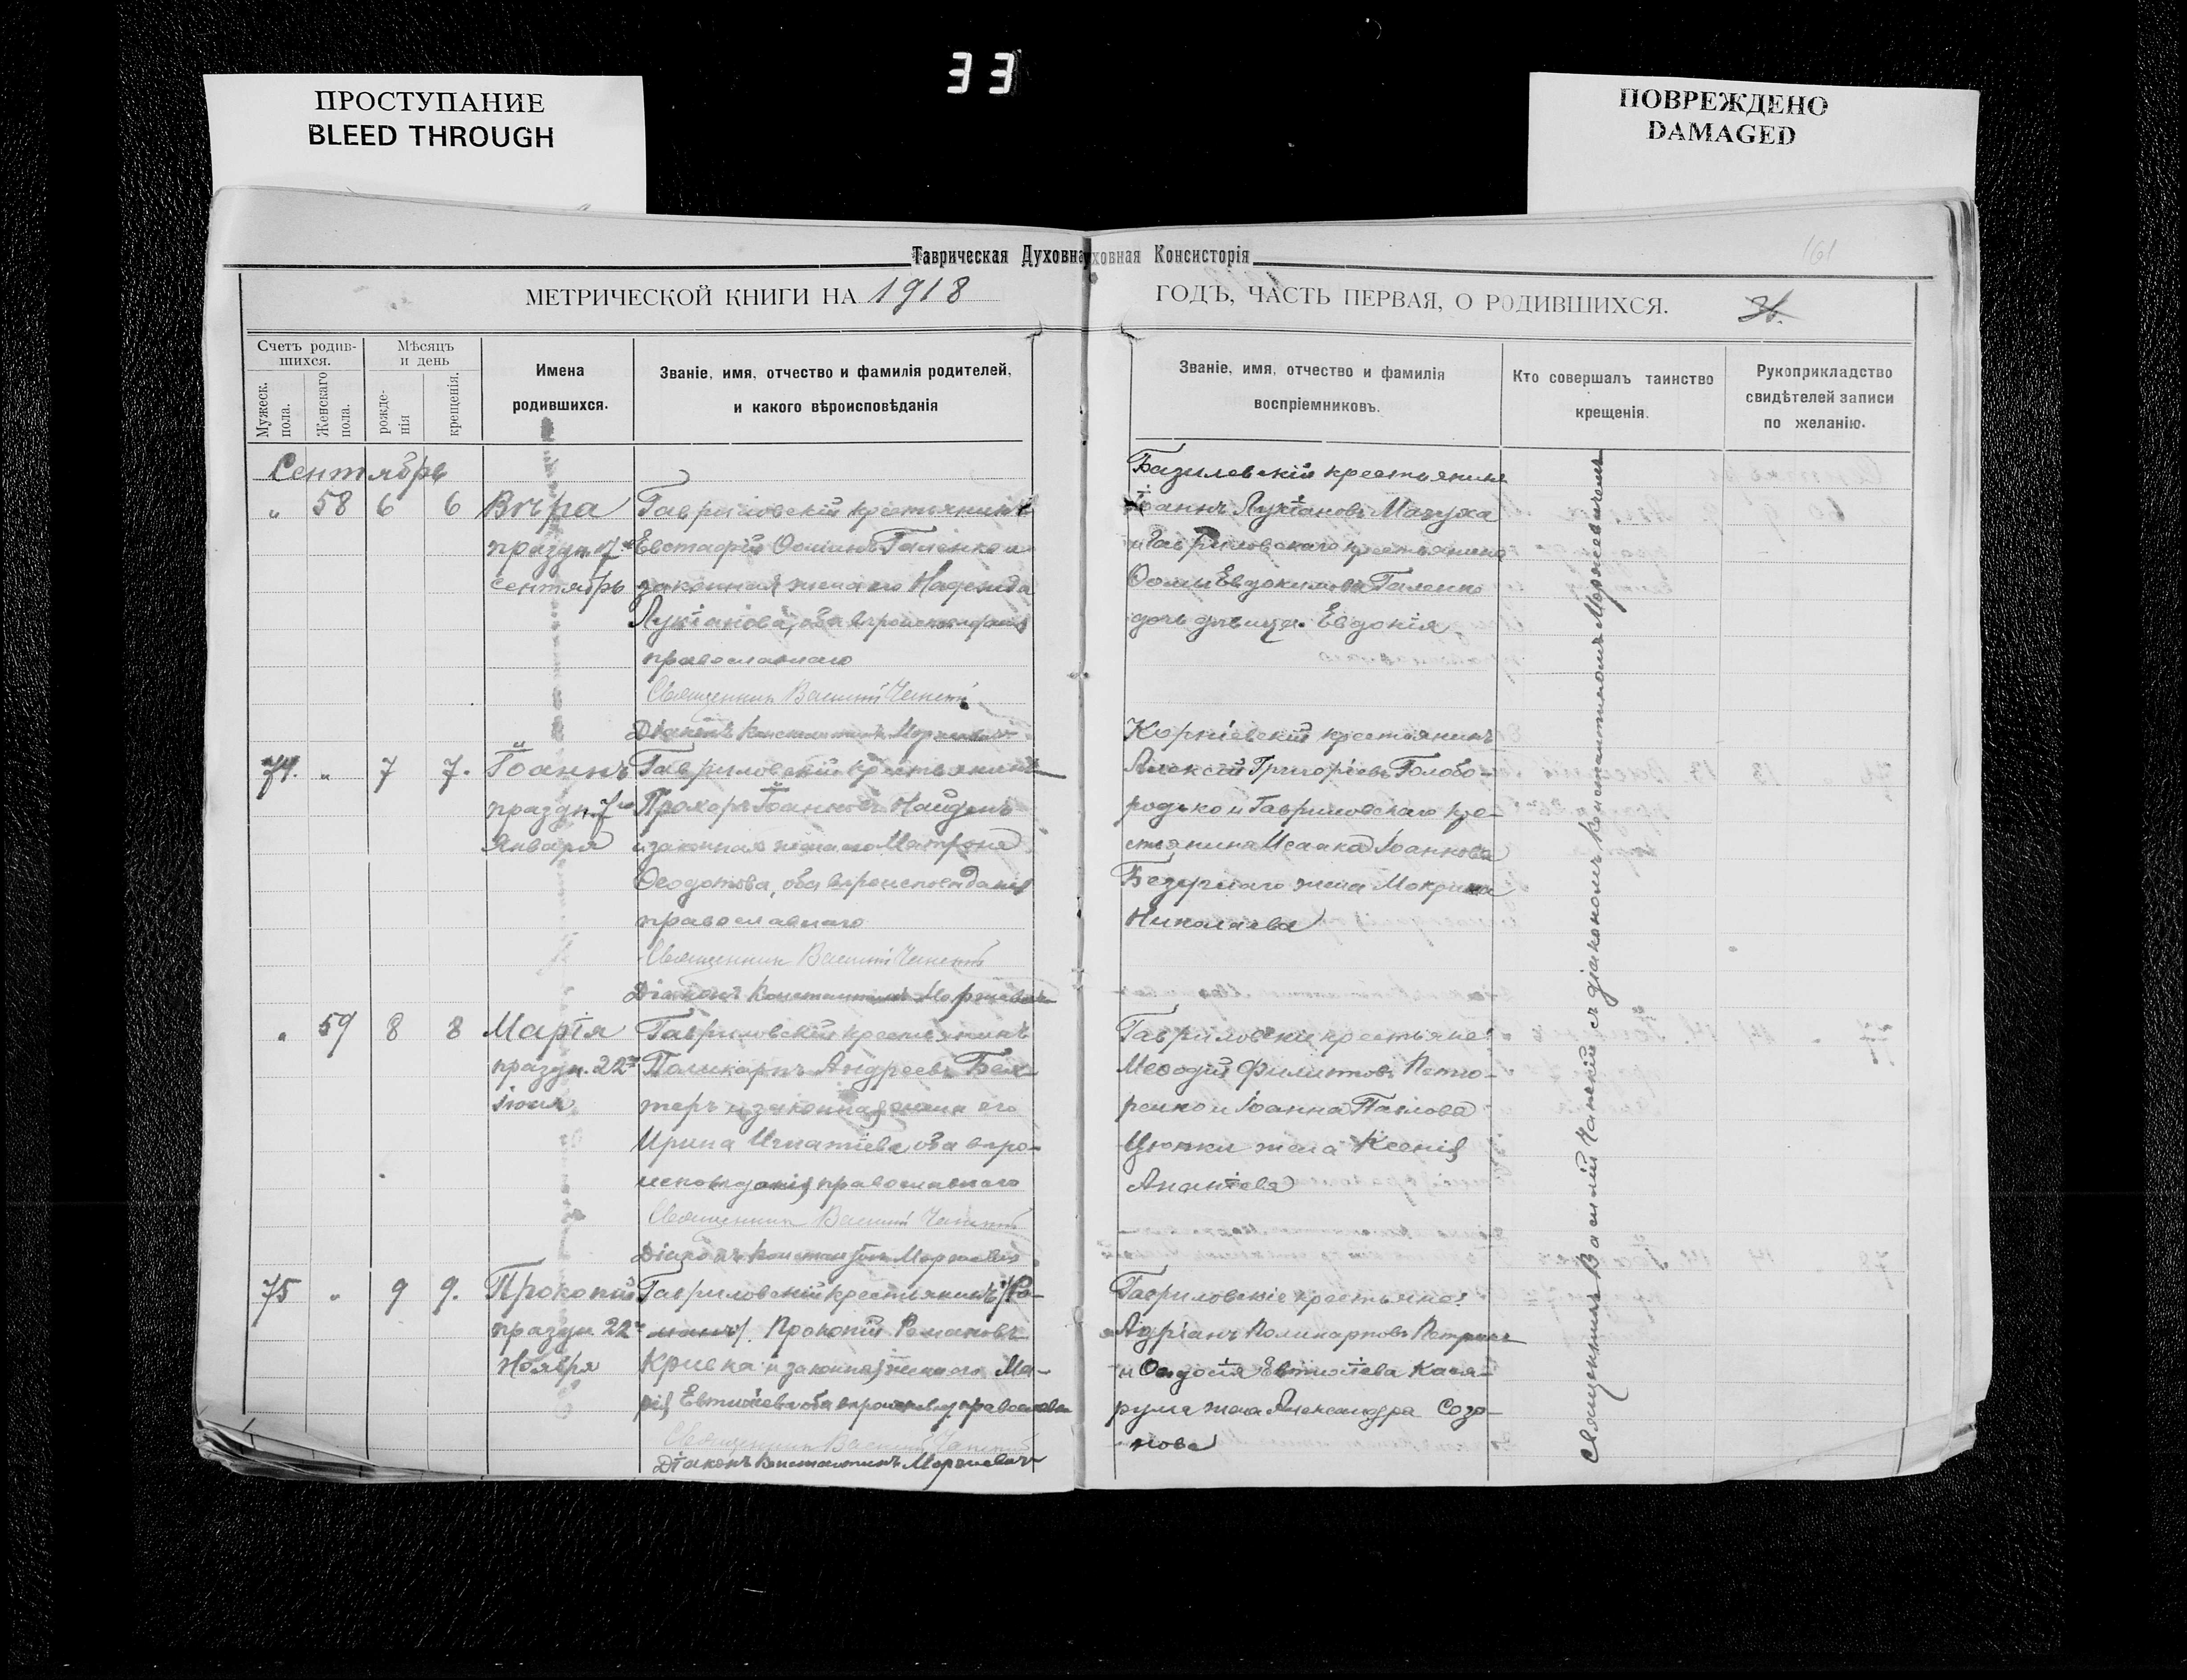 33
ПРОСТУПАНИЕ
BLEED THROUGH
ПОВРЕЖДЕНО
DAMAGED
Таврическая Духовна
ховная Консисторія
161
МЕТРИЧЕСКОЙ КНИГИ НА 1918
ГОДЪ, ЧАСТЬ ПЕРВАЯ, О РОДИВШИХСЯ.
Счетъ родив-
шихся.
Мужеск.
пола.
Женскаго
пола.
Мѣсяцъ
и день
рожде-
нія
крещенія.
Имена
родившихся.
Званіе, имя, отчество и фамилія родителей,
и какого вѣроисповѣданія
Званіе, имя, отчество и фамилія
воспріемниковъ.
Кто совершалъ таинство
крещенія.
Рукоприкладство
свидѣтелей записи
по желанію.
Сентябрь
„ 58 6 6 Вѣра
праздн. 17го
сентябрь
Гавриловскій крестьянинъ
Евстафій Ѳоминъ Галенко и
законная жена его Надежда
Лукіанова, оба вѣроисповѣданія
православнаго
Священникъ Василій
Діаконъ Константинъ Моржевичъ
Базилевскій крестьянинъ
Іоаннъ Лукіановъ Мачуха
и Гавриловскаго крестьянина
Ѳомы Евдокимова Галенко
дочь дѣвица Евдокія.
74. „ 7 7. Іоаннъ
праздн. 7го
Января
Гавриловскій крестьянинъ
Прохоръ Іоанновъ Найденъ
и законная жена его Матрона
Ѳеодотова, оба вѣроисповѣданія
православнаго
Священникъ Василій
Діаконъ Константинъ Моржевичъ
Корніевскій крестьянинъ
Алексій Григоріевъ Голобо-
родько и Гавриловскаго кре-
стьянина Исаака Іоаннова
Безуглаго жена Мокрина
Николаева
„ 59 8 8 Марія
праздн. 22го
іюля
Гавриловскій крестьянинъ
Поликарпъ Андреевъ Бех-
теръ и законная жена его
Ирина Игнатіева, оба вѣро-
исповѣданія православнаго
Священникъ Василій
Діаконъ Константинъ Моржевичъ
Гавриловскіе крестьяне:
Меѳодій Филиповъ
и Іоанна Павлова
жена Ксенія
Ананіева
75 „ 9 9. Прокопій
праздн 22го
Ноября
Гавриловскій крестьянинъ /Ро-
манъ/. Прокопій Романовъ
Кривка и законная жена его Ма-
рія Евтихіева оба вѣроисповѣд. православн
Священникъ Василій
Діаконъ Константинъ Моржевичъ
Гавриловскіе крестьяне:
Адріанъ Поликарповъ
и
жена Александра Созо-
нова
Священникъ Василій съ діакономъ Константиномъ Моржевичемъ